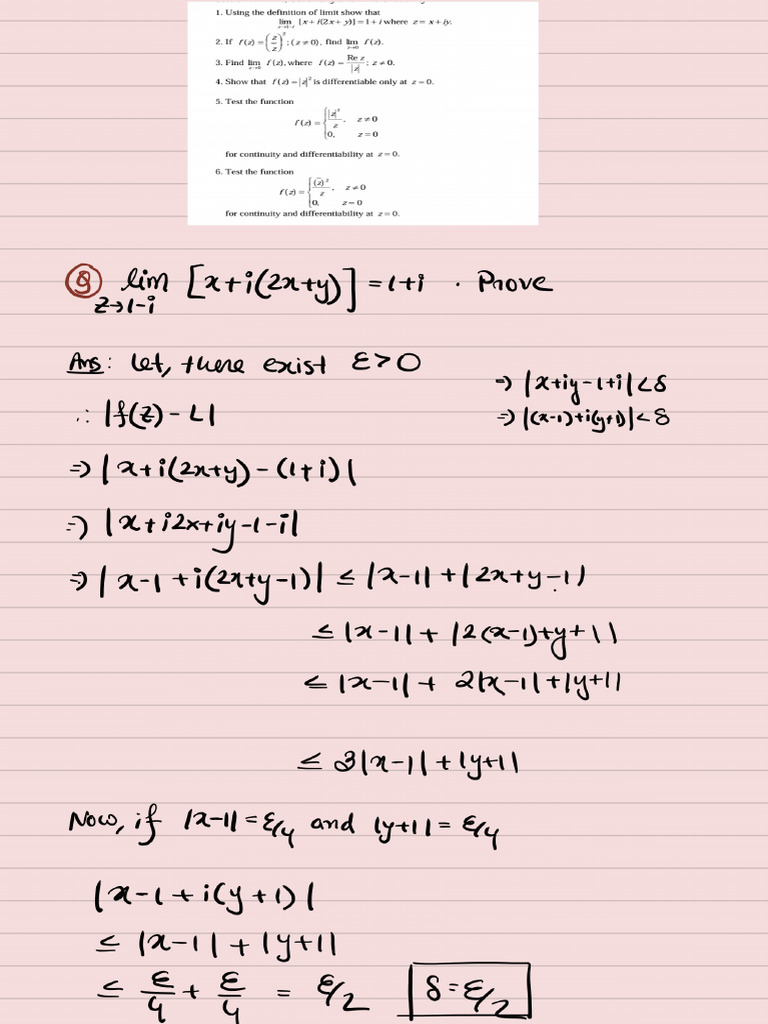 1. Using the definition of limit show that
lim [x + i(2x + y)] = 1 + i where z = x + iy.
z→1−i
2. If f(z) = (z/z̄)²; (z ≠ 0), find lim z→0 f(z).
3. Find lim z→0 f(z), where f(z) = Re z / |z|; z ≠ 0.
4. Show that f(z) = |z|² is differentiable only at z = 0.
5. Test the function
f(z) = { |z|²/z, z ≠ 0
0, z = 0
for continuity and differentiability at z = 0.
6. Test the function
f(z) = { (z̄)²/z, z ≠ 0
0, z = 0
for continuity and differentiability at z = 0.
Q lim [x+i(2x+y)] = 1+i . Prove
z→1-i
Ans: let, there exist ε>0
⇒ |x+iy-1+i|<δ
∴ |f(z) - L|
⇒ |(x-1)+i(y+1)|<δ
⇒ |x+i(2x+y) - (1+i)|
⇒ |x+i2x+iy-1-i|
⇒ |x-1+i(2x+y-1)| ≤ |x-1|+|2x+y-1|
≤ |x-1| + |2(x-1)+y+1|
≤ |x-1| + 2|x-1|+|y+1|
≤ 3|x-1|+|y+1|
Now, if |x-1|=ε/4 and |y+1|=ε/4
|x-1+i(y+1)|
≤ |x-1|+|y+1|
≤ ε/4 + ε/4 = ε/2 δ=ε/2